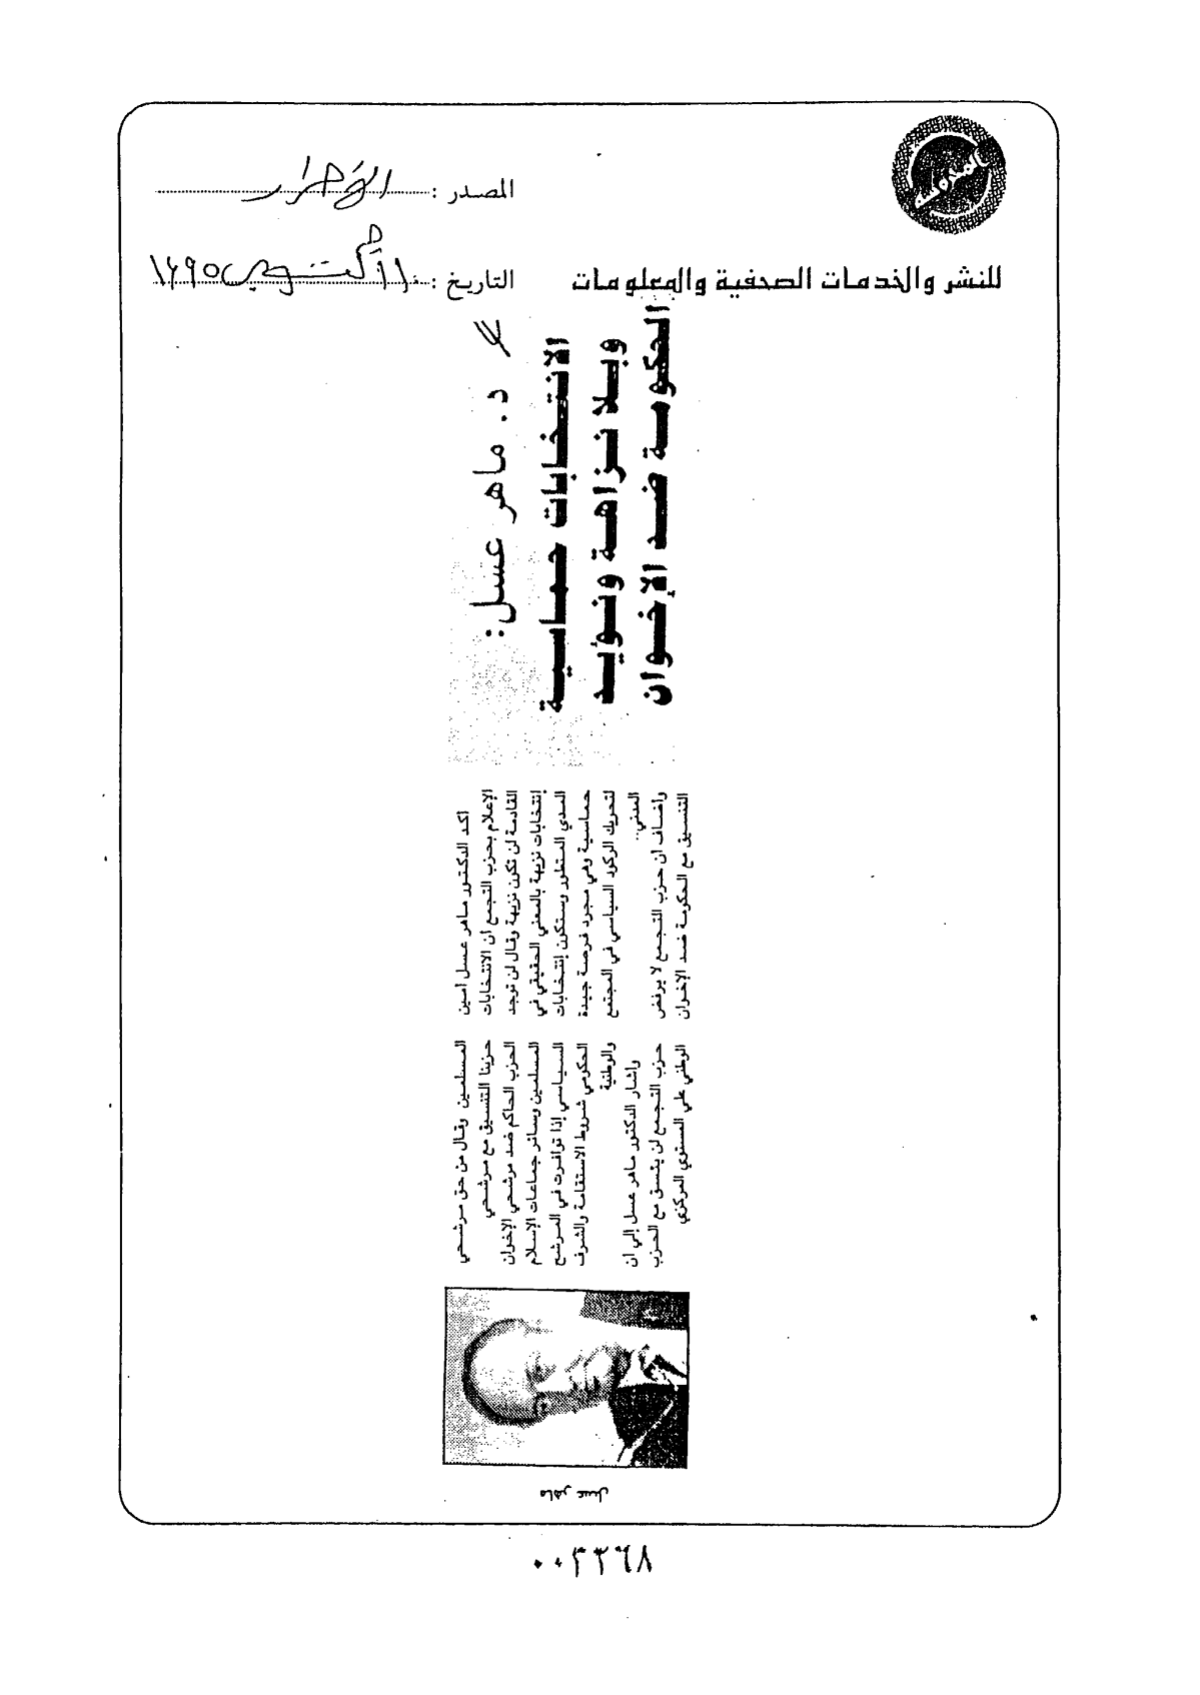 المصدر : الأحرار
للنشر والخدمات الصحفية والمعلومات
التاريخ : ١١ أكتوبر ١٩٩٥
د. ماهر عسل:
الانتخابات حماسية
وبلا نزاهة ونؤيد
الحكومة ضد الإخوان
أكد الدكتور ماهر عسل أمين
الإعلام بحزب التجمع أن الانتخابات
القادمة لن تكون نزيهة وقال لن توجد
إنتخابات نزيهة بالمعني الحقيقي في
المدي المنظور وستكون إنتخابات
حماسية وهي مجرد فرصة جيدة
لتحريك الركود السياسي في المجتمع
المدني..
وأضاف أن حزب التجمع لا يرفض
التنسيق مع الحكومة ضد الإخوان
المسلمين وقال من حق مرشحي
حزبنا التنسيق مع مرشحي
الحزب الحاكم ضد مرشحي الإخوان
المسلمين وسائر جماعات الإسلام
السياسي إذا توافرت في المرشح
الحكومي شروط الاستقامة والشرف
والوطنية
وأشار الدكتور ماهر عسل إلي أن
حزب التجمع لن ينسق مع الحزب
الوطني علي المستوي المركزي
ماهر عسل
٠٠٣٣٦٨